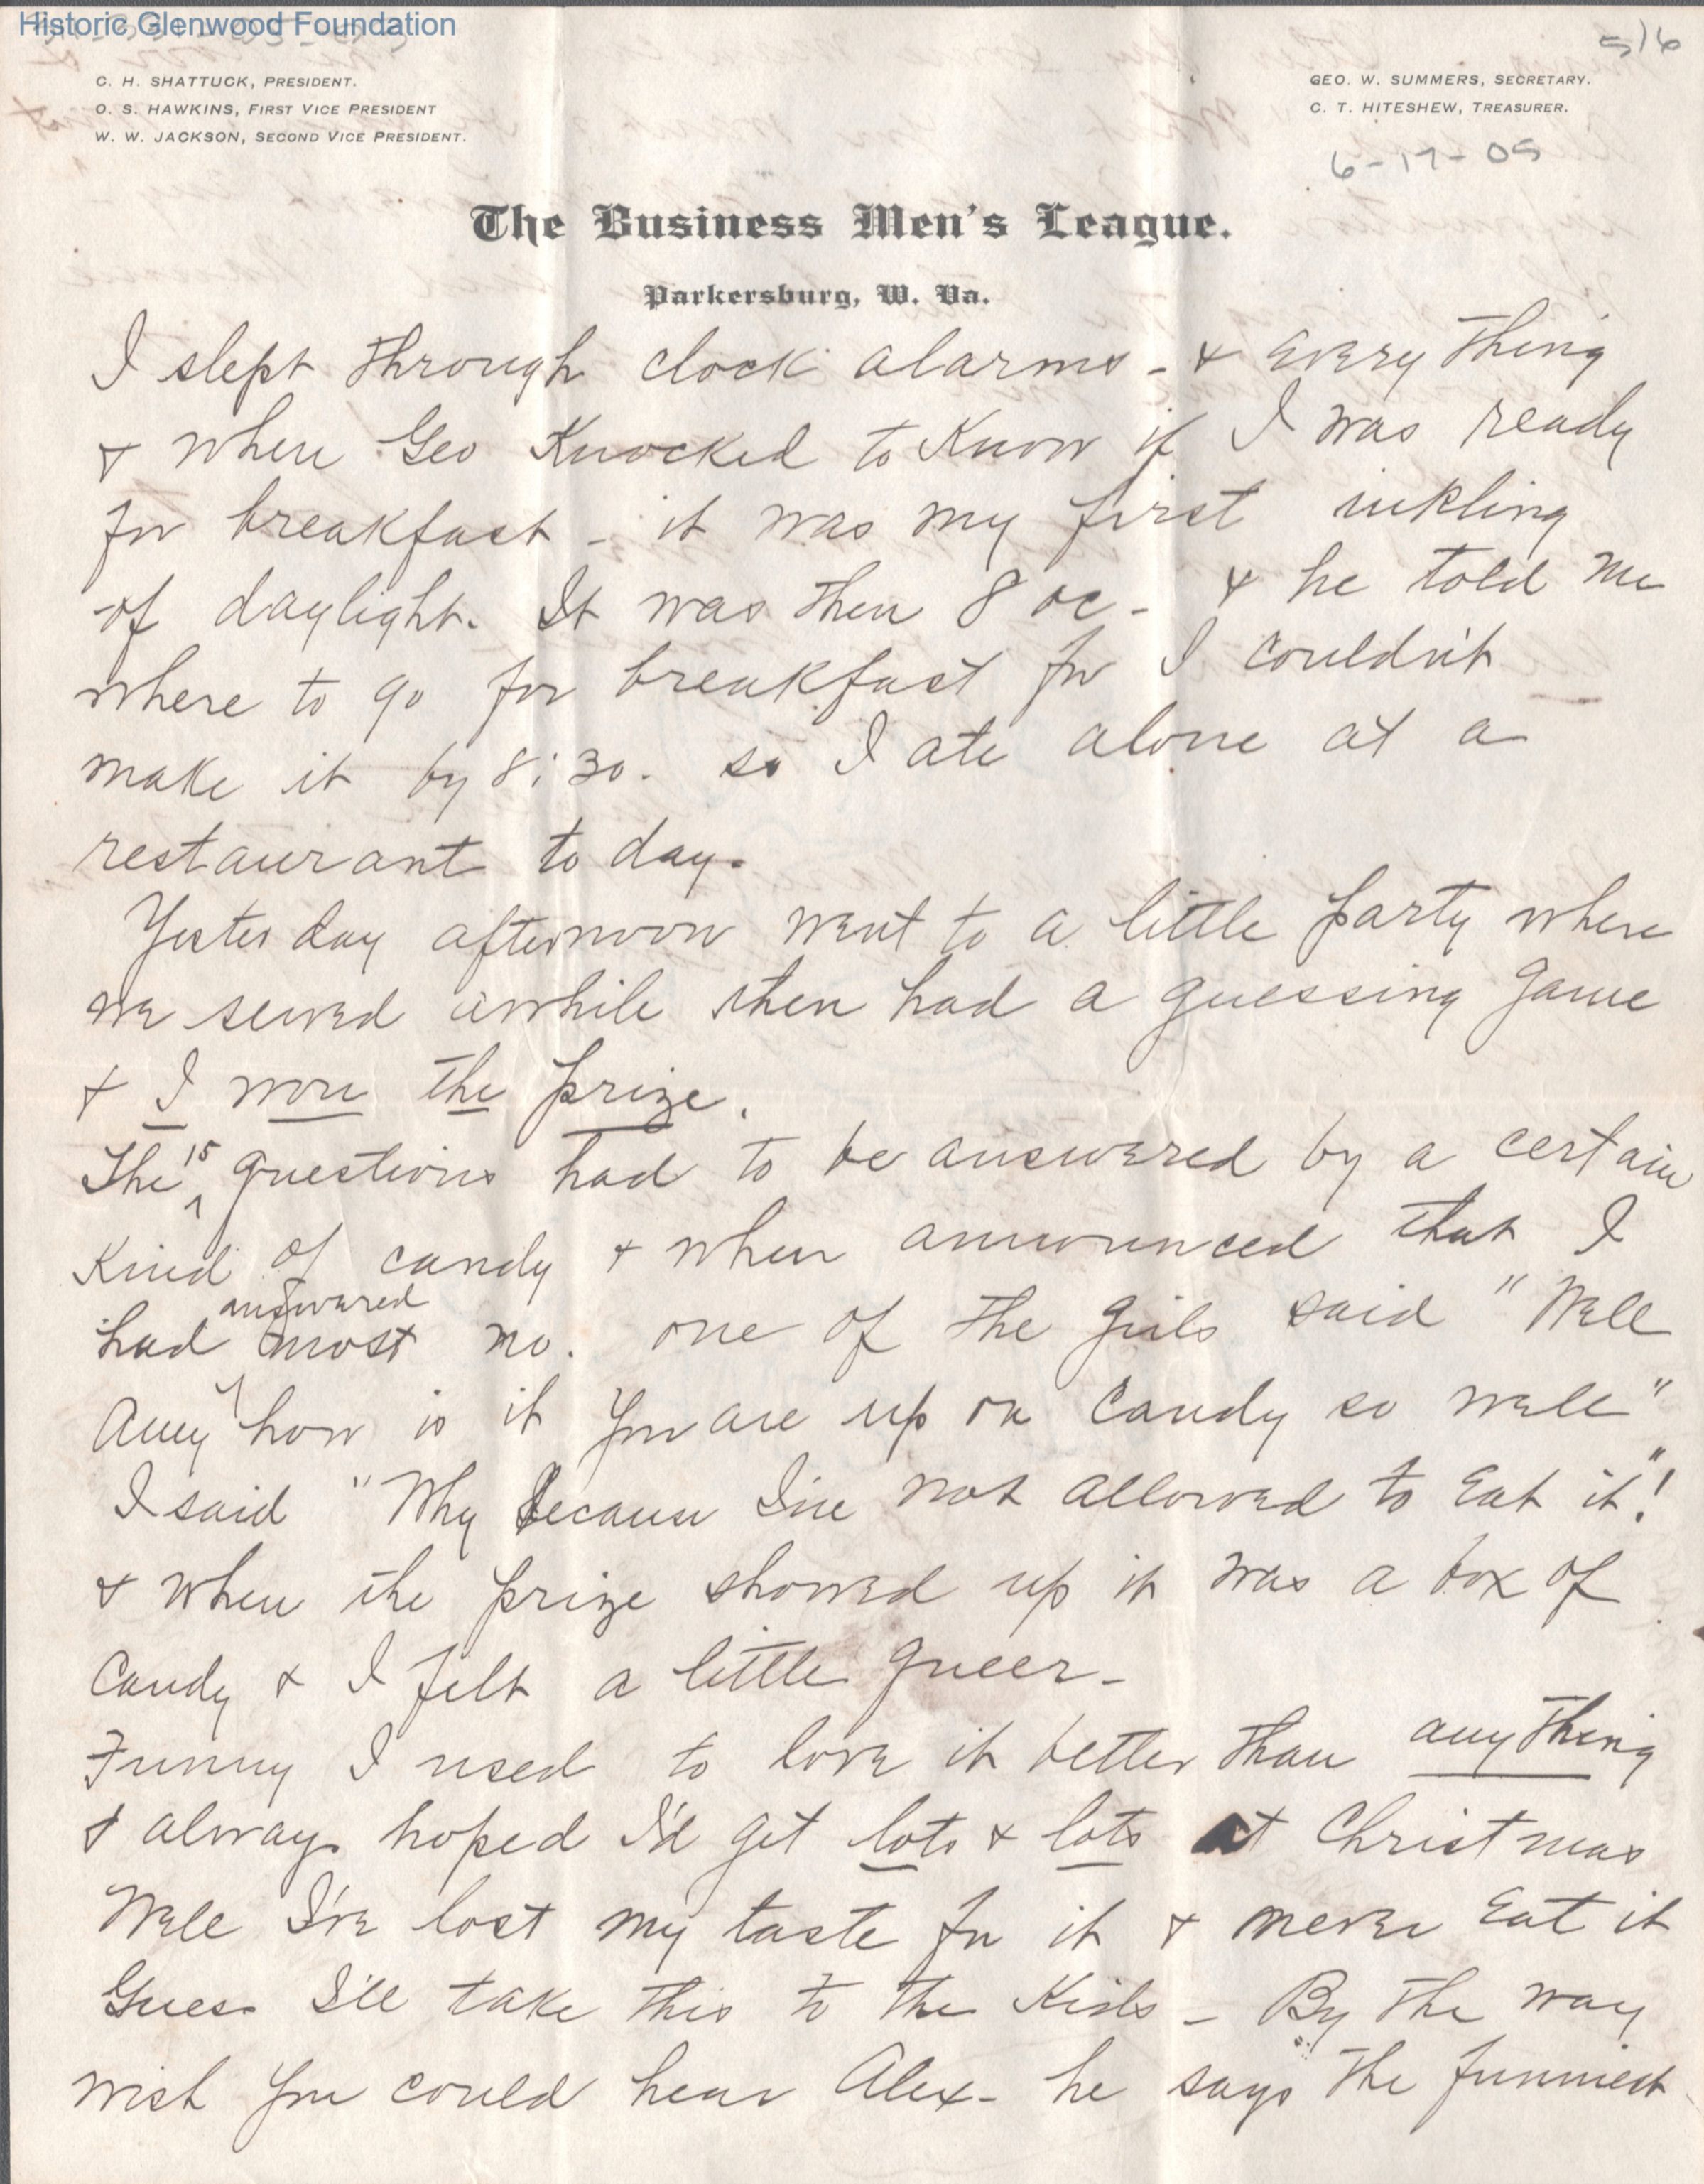 Historic Glenwood Foundation
516
C. H. SHATTUCK, PRESIDENT.
O. S. HAWKINS, FIRST VICE PRESIDENT
W. W. JACKSON, SECOND VICE PRESIDENT.
GEO. W. SUMMERS, SECRETARY.
C. T. HITESHEW, TREASURER.
6-17-05
The Business Men's League.
Parkersburg, W. Va.
I slept through clock alarms - & every thing
& when Geo Knocked to Know if I was ready
for breakfast - it was my first inkling
of daylight. It was then 8 oc - & he told me
where to go for breakfast for I couldn't
make it by 8:30. so I ate alone at a
restaurant to day.
Yesterday afternoon went to a little party where
we sewed awhile then had a guessing game
& I won the prize.
The 15 questions had to be answered by a certain
Kind of candy & when announced that I
had answered most no. one of the girls said "Well
Amy how is it you are up on Candy so well"
I said "Why because I'm not allowed to Eat it"!
& when the prize showed up it was a box of
Candy & I felt a little queer-
Funny I used to love it better than anything
& always hoped I'd get lots & lots at Christmas
Well I've lost my taste for it & never Eat it
Guess I'll take this to the Kids - By the way
wish you could hear Alex - he says the funniest